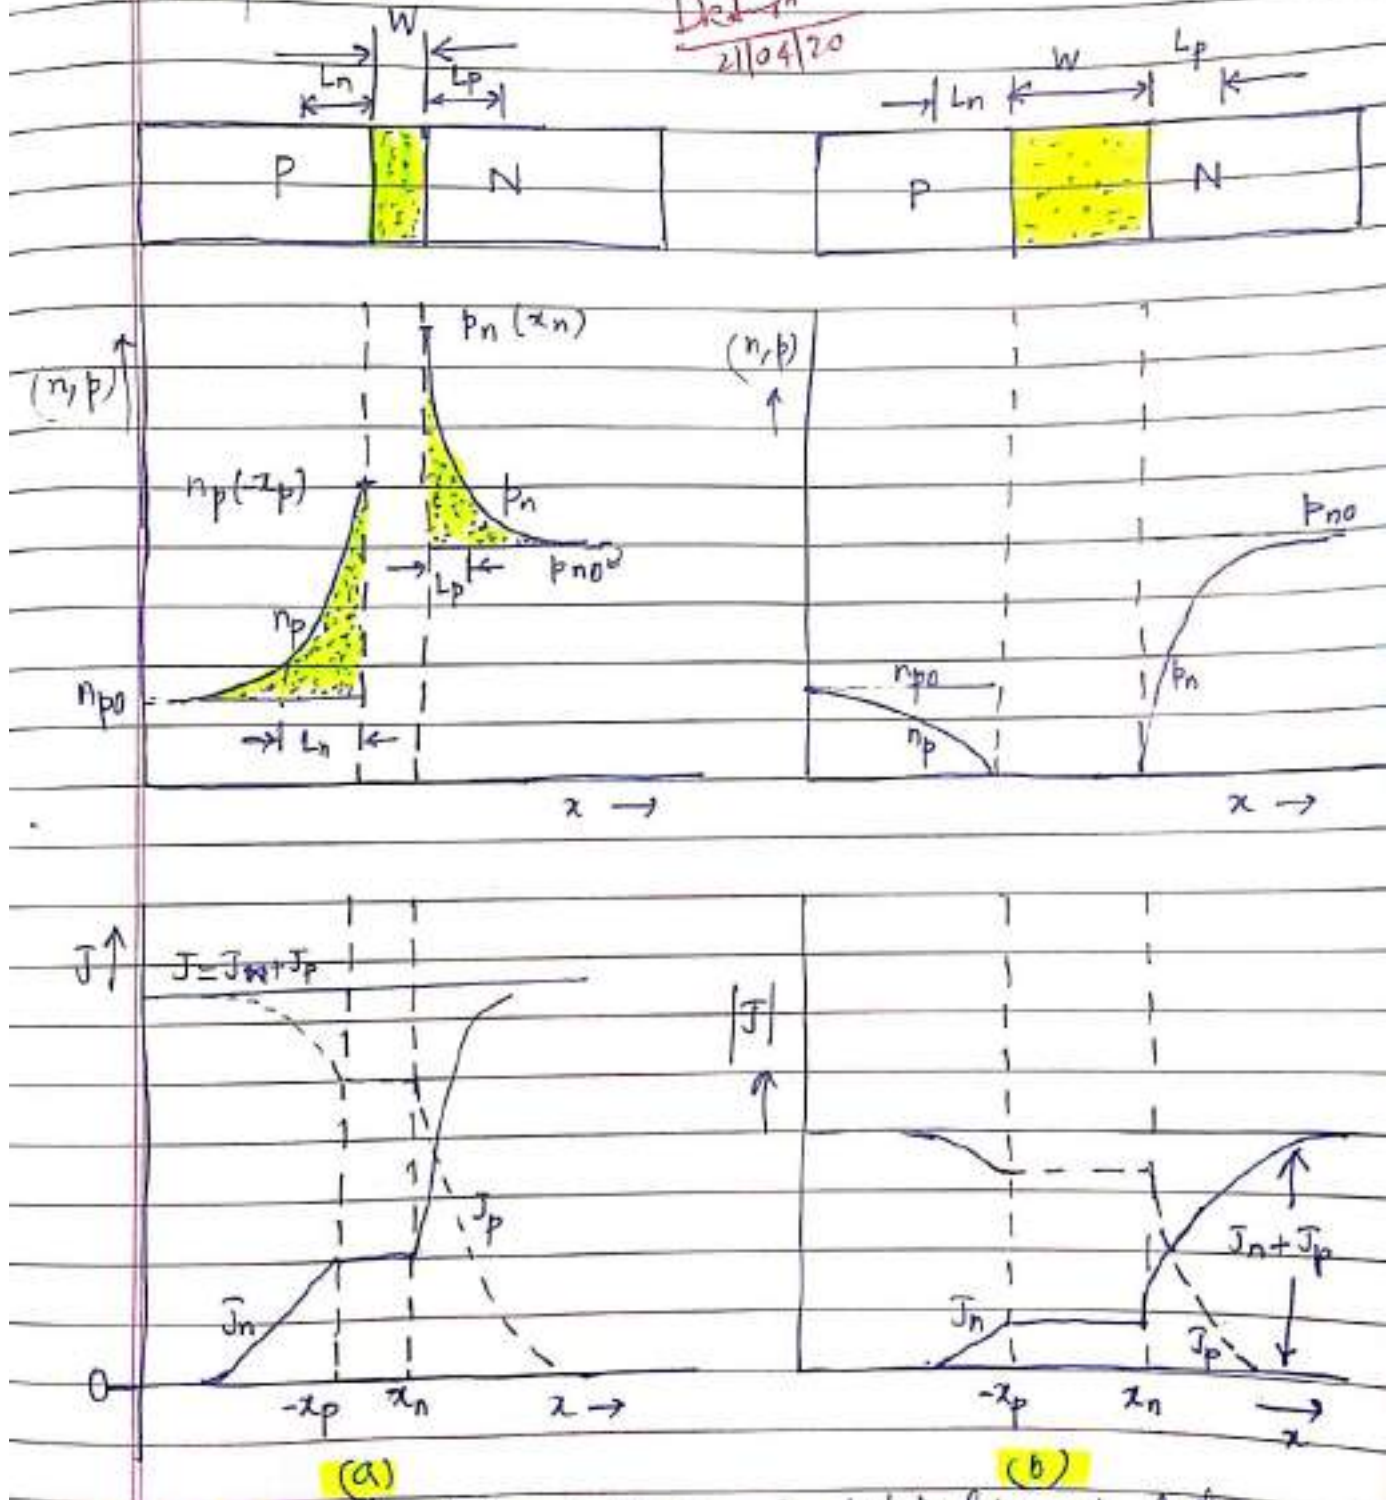 21/04/20
W
Ln
Lp
P
N
Ln
W
Lp
P
N
(n,p)
pn (xn)
np(-xp)
pn
Lp
pno
np
npo
Ln
x →
(n,p)
pno
npo
np
pn
x →
J
J=Jn+Jp
Jp
Jn
0
-xp
xn
x →
(a)
|J|
Jn
Jn+Jp
Jp
-xp
xn
x
(b)